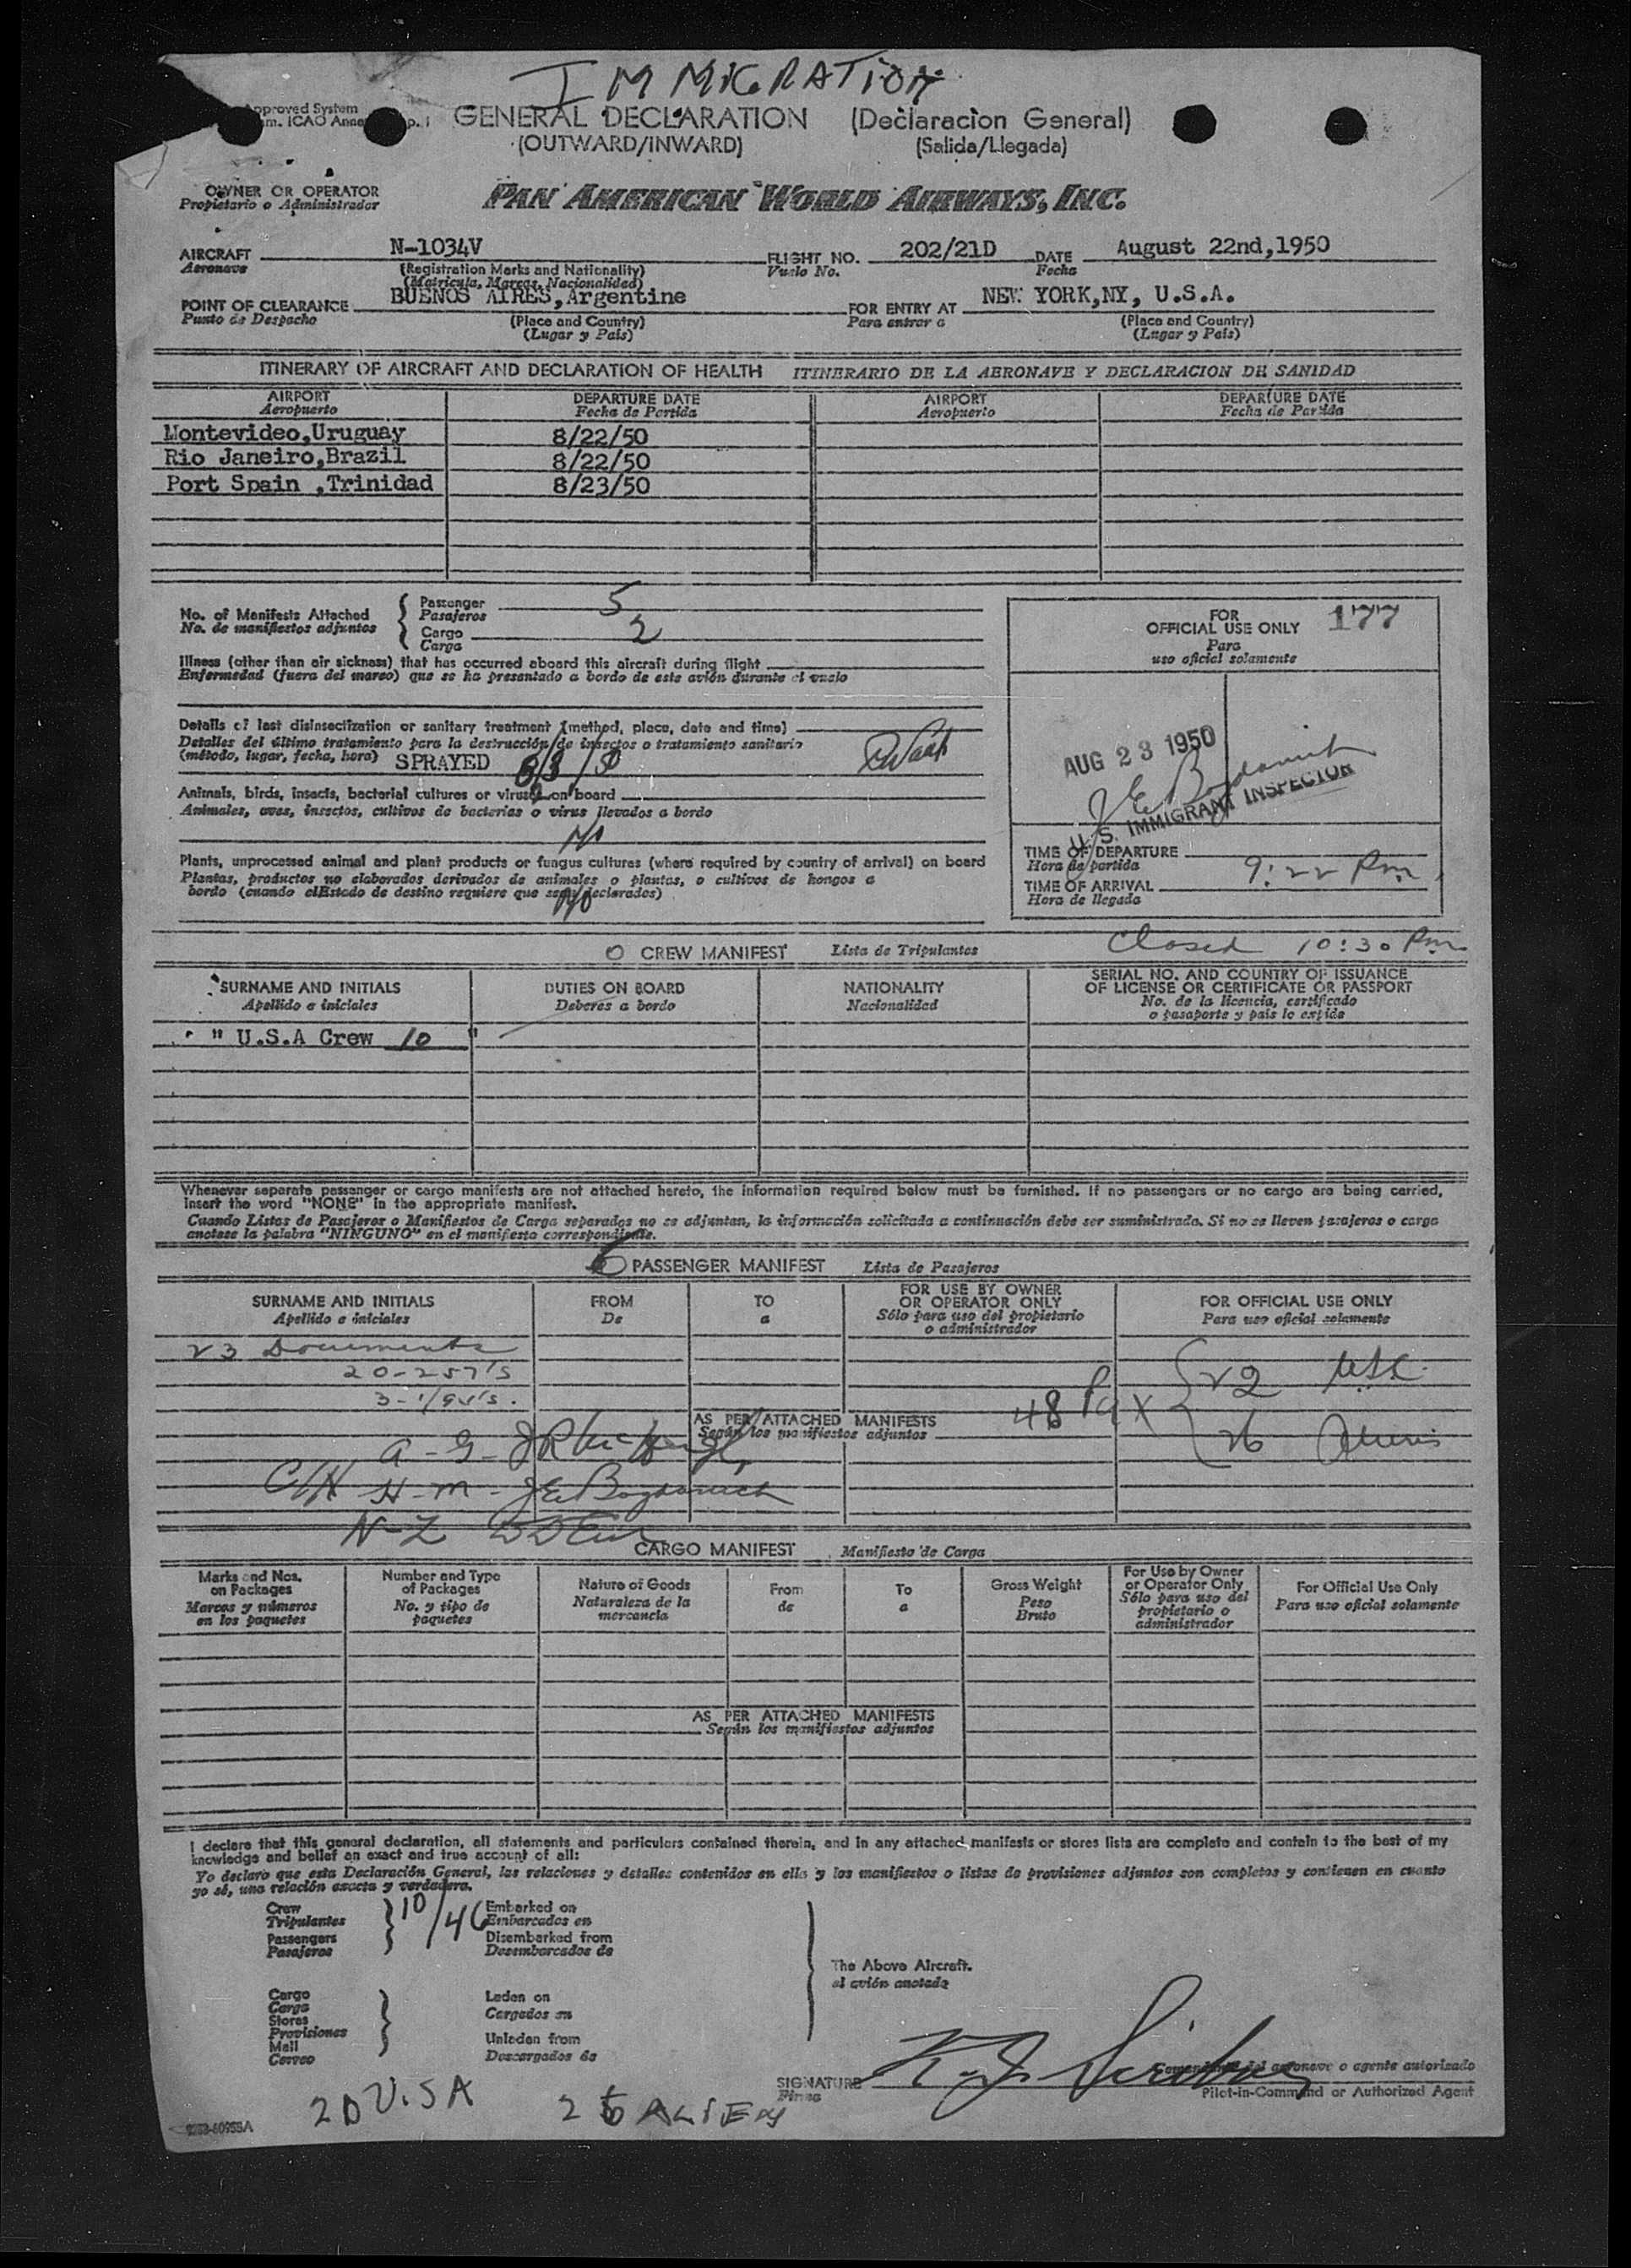 IMMIGRATION
pproved System
m. ICAO Anne p. 1
GENERAL DECLARATION (Declaracion General)
(OUTWARD/INWARD) (Salida/Llegada)
OWNER OR OPERATOR
Propietario o Administrador
PAN AMERICAN WORLD AIRWAYS, INC.
AIRCRAFT N-1034V FLIGHT NO. 202/21D DATE August 22nd,1950
Aeronave (Registration Marks and Nationality) Vuelo No. Fecha
(Matricula, Marcas, Nacionalidad)
POINT OF CLEARANCE BUENOS AIRES,Argentine FOR ENTRY AT NEW YORK,NY, U.S.A.
Punto de Despacho (Place and Country) Para entrar a (Place and Country)
(Lugar y Pais) (Lugar y Pais)
ITINERARY OF AIRCRAFT AND DECLARATION OF HEALTH ITINERARIO DE LA AERONAVE Y DECLARACION DE SANIDAD
AIRPORT DEPARTURE DATE AIRPORT DEPARTURE DATE
Aeropuerto Fecha de Partida Aeropuerto Fecha de Partida
Montevideo,Uruguay 8/22/50
Rio Janeiro,Brazil 8/22/50
Port Spain ,Trinidad 8/23/50
No. of Manifests Attached Passenger 5
No. de manifiestos adjuntos Pasajeros
Cargo 2
Carga
Illness (other than air sickness) that has occurred aboard this aircraft during flight
Enfermedad (fuera del mareo) que se ha presentado a bordo de este avión durante el vuelo
Details of last disinsectization or sanitary treatment (method, place, date and time)
Detalles del último tratamiento para la destrucción de insectos o tratamiento sanitario
(método, lugar, fecha, hora) SPRAYED
Animals, birds, insects, bacterial cultures or viruses on board
Animales, aves, insectos, cultivos de bacterias o virus llevados a bordo
Plants, unprocessed animal and plant products or fungus cultures (where required by country of arrival) on board
Plantas, productos no elaborados derivados de animales o plantas, o cultivos de hongos a
bordo (cuando el Estado de destino requiere que sean declarados)
FOR
OFFICIAL USE ONLY 177
Para
uso oficial solamente
AUG 23 1950
U. S. IMMIGRANT INSPECTOR
TIME OF DEPARTURE
Hora de partida
TIME OF ARRIVAL 9:22 Pm
Hora de llegada
Closed 10:30 Pm
CREW MANIFEST Lista de Tripulantes
SURNAME AND INITIALS DUTIES ON BOARD NATIONALITY SERIAL NO. AND COUNTRY OF ISSUANCE
OF LICENSE OR CERTIFICATE OR PASSPORT
Apellido e iniciales Deberes a bordo Nacionalidad No. de la licencia, certificado
o pasaporte y pais lo expide
" U.S.A Crew 10 "
Whenever separate passenger or cargo manifests are not attached hereto, the information required below must be furnished. If no passengers or no cargo are being carried,
insert the word "NONE" in the appropriate manifest.
Cuando Listas de Pasajeros o Manifiestos de Carga separados no se adjuntan, la información solicitada a continuación debe ser suministrada. Si no se lleven pasajeros o carga
anotese la palabra "NINGUNO" en el manifiesto correspondiente.
PASSENGER MANIFEST Lista de Pasajeros
SURNAME AND INITIALS FROM TO FOR USE BY OWNER
OR OPERATOR ONLY FOR OFFICIAL USE ONLY
Apellido e iniciales De a Sólo para uso del propietario
o administrador Para uso oficial solamente
23 Documents
20-257's
AS PER ATTACHED MANIFESTS 48 Pax
Según los manifiestos adjuntos
26 Aliens
A - G -
H - M - J E Bogdanich
N-Z
CARGO MANIFEST Manifiesto de Carga
Marks and Nos.
on Packages
Marcas y números
en los paquetes
Number and Type
of Packages
No. y tipo de
paquetes
Nature of Goods
Naturaleza de la
mercancia
From
de
To
a
Gross Weight
Peso
Bruto
For Use by Owner
or Operator Only
Sólo para uso del
propietario o
administrador
For Official Use Only
Para uso oficial solamente
AS PER ATTACHED MANIFESTS
Según los manifiestos adjuntos
I declare that this general declaration, all statements and particulars contained therein, and in any attached manifests or stores lists are complete and contain to the best of my
knowledge and belief an exact and true account of all:
Yo declaro que esta Declaración General, las relaciones y detalles contenidos en ella y los manifiestos o listas de provisiones adjuntos son completos y contienen en cuanto
yo sé, una relación exacta y verdadera.
Crew 10/46 Embarked on
Tripulantes Embarcados en
Passengers Disembarked from
Pasajeros Desembarcados de
The Above Aircraft.
al avión anotado
Cargo Laden on
Carga Cargados en
Stores
Provisiones Unladen from
Mail Descargados de
Correo
SIGNATURE
Firma
Comandante del aeronave o agente autorizado
Pilot-in-Command or Authorized Agent